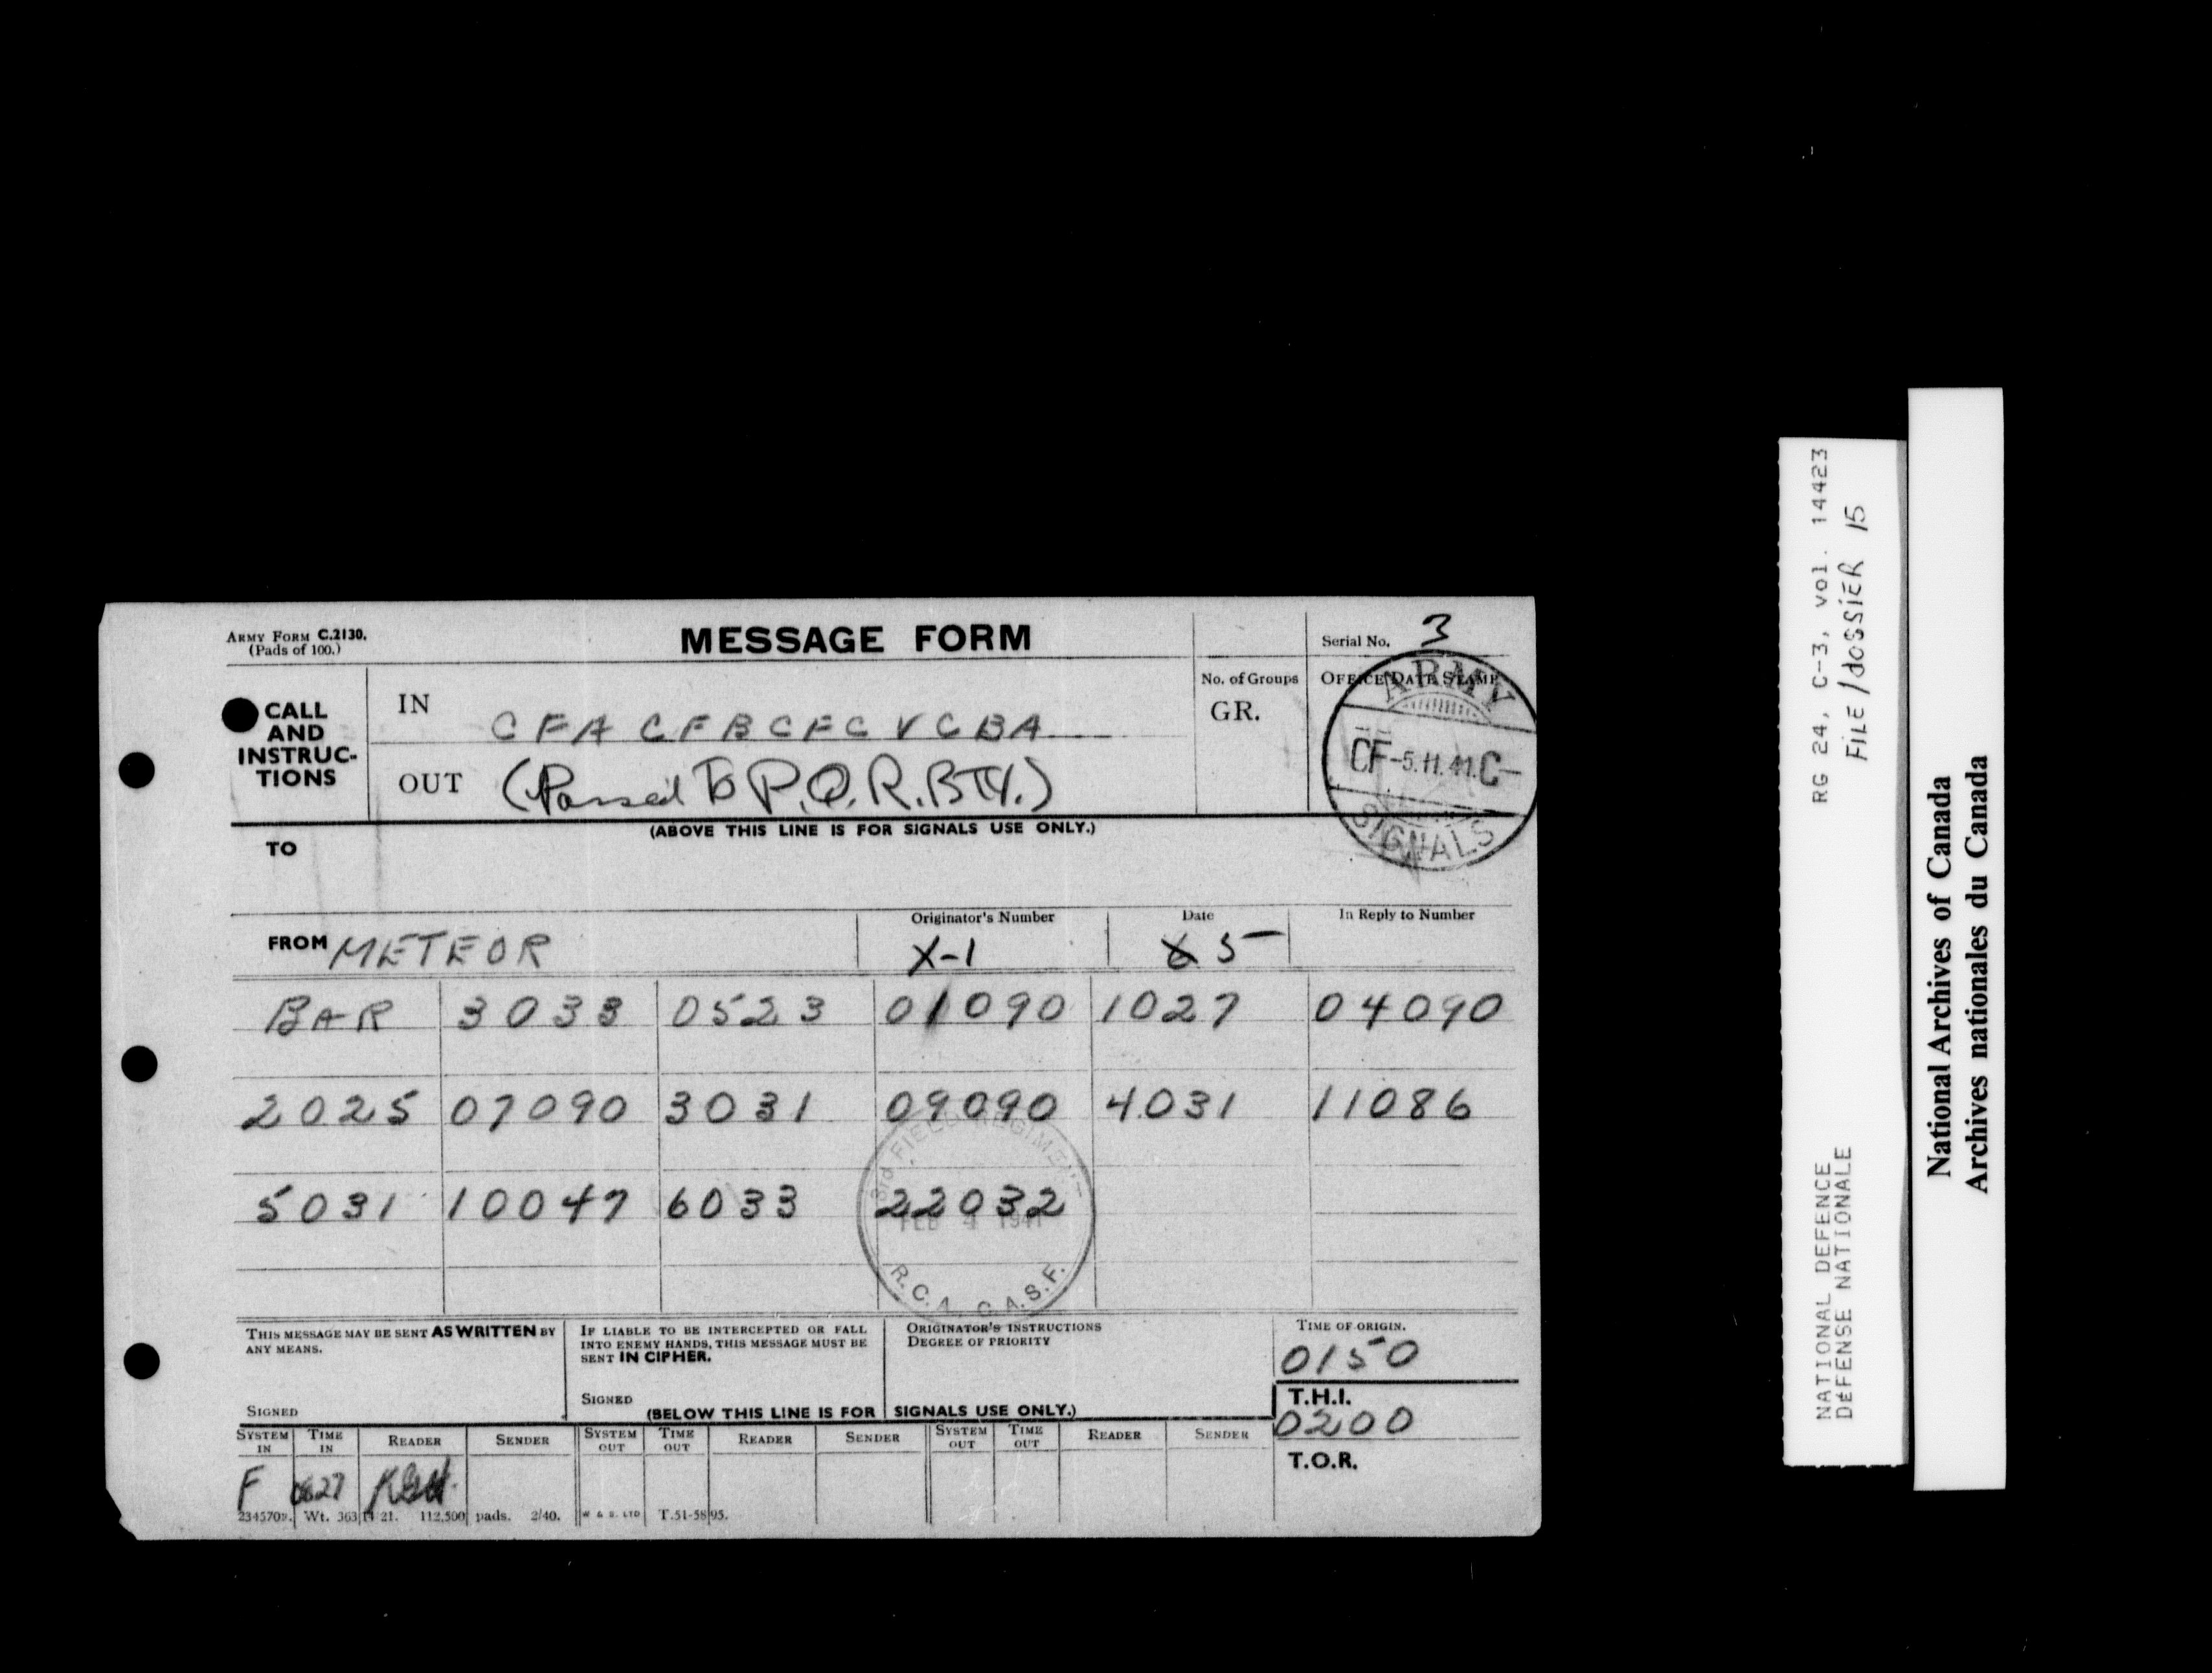 ARMY FORM C.2130.
(Pads of 100.)
MESSAGE FORM
Serial No. 3
CALL
AND
INSTRUC-
TIONS
IN CFA CFB CFC V CBA
OUT (Passed To P.Q.R. BTY.)
No. of Groups
GR.
OFFICE DATE STAMP
ARMY
CF -5.II.41.C-
SIGNALS
(ABOVE THIS LINE IS FOR SIGNALS USE ONLY.)
TO
FROM METEOR
Originator's Number
X-1
Date
5
In Reply to Number
BAR 3033 0523 01090 1027 04090
2025 07090 3031 09090 4031 11086
5031 10047 6033 22032
3rd FIELD REGIMENT
FEB 4 1941
R.C.A. C.A.S.F.
THIS MESSAGE MAY BE SENT AS WRITTEN BY
ANY MEANS.
SIGNED
IF LIABLE TO BE INTERCEPTED OR FALL
INTO ENEMY HANDS, THIS MESSAGE MUST BE
SENT IN CIPHER.
SIGNED
ORIGINATOR'S INSTRUCTIONS
DEGREE OF PRIORITY
TIME OF ORIGIN.
0150
T.H.I.
0200
T.O.R.
(BELOW THIS LINE IS FOR SIGNALS USE ONLY.)
SYSTEM IN TIME IN READER SENDER SYSTEM OUT TIME OUT READER SENDER SYSTEM OUT TIME OUT READER SENDER
F
Wt. 363 21. 112,500 pads. 2/40. W & S. LTD T.51-5895.
RG 24, C-3, vol. 14423
FILE/dossier 15
NATIONAL DEFENCE
DÉFENSE NATIONALE
National Archives of Canada
Archives nationales du Canada